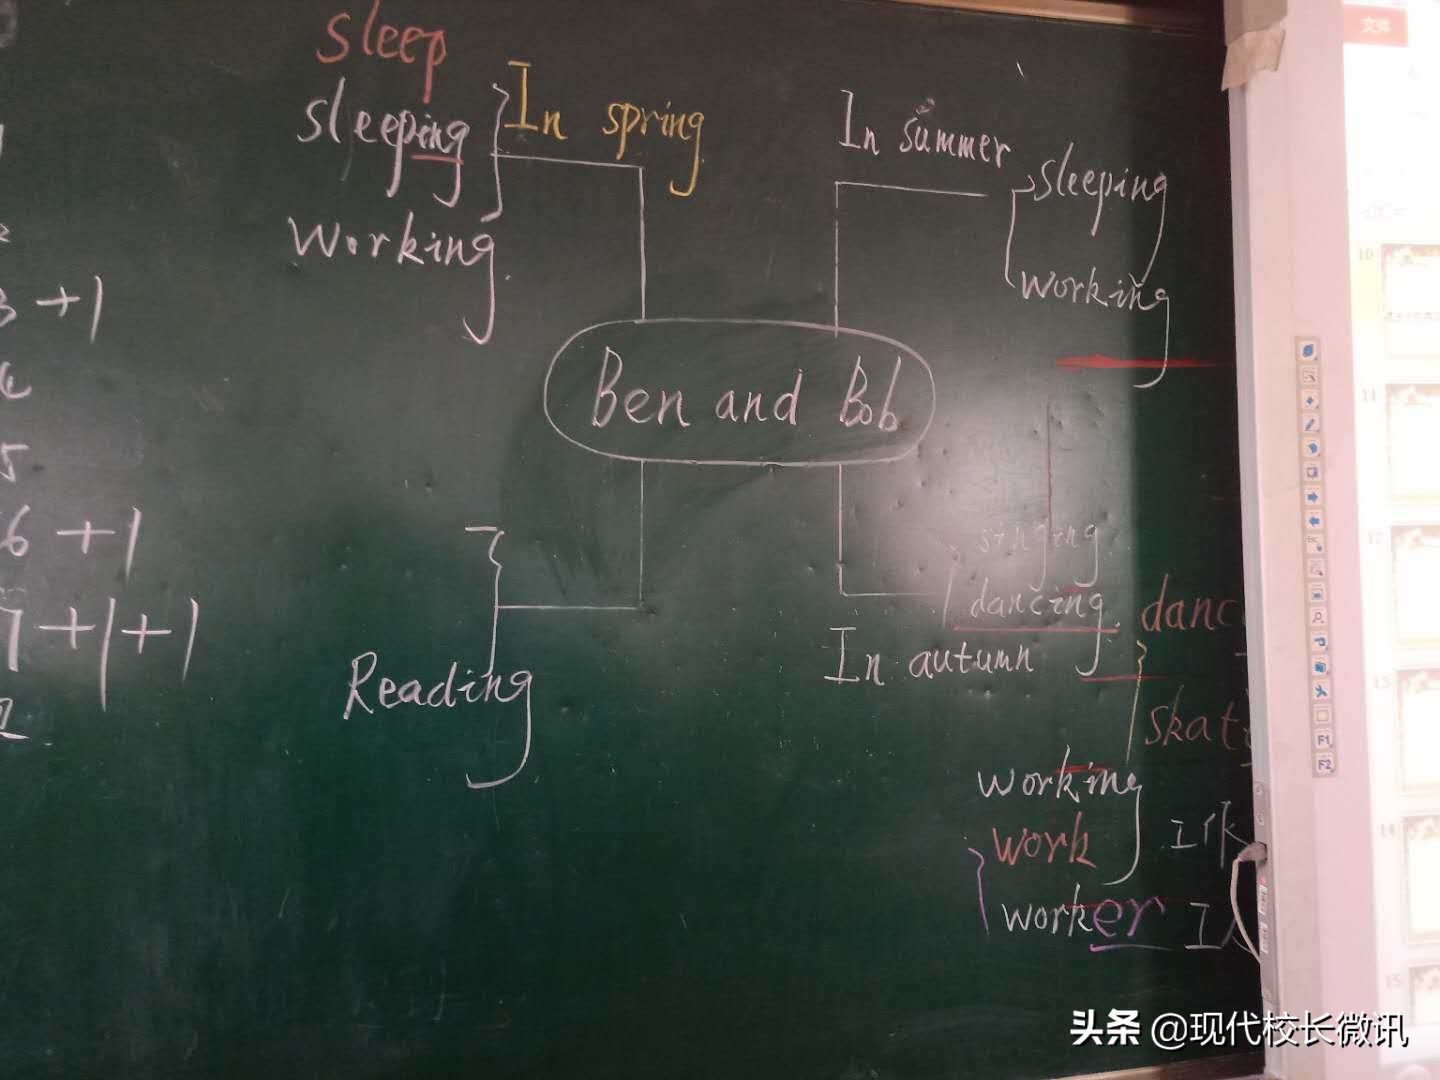 sleep
sleeping
In spring
working.
In summer
sleeping
working
Ben and Bob
3 +1
5
6 +1
7 +1+1
singing
dancing.
In autumn
Reading
working
work
worker
工作
工人
文件
10
11
12
13
14
15
F1
F2
头条 @现代校长微讯